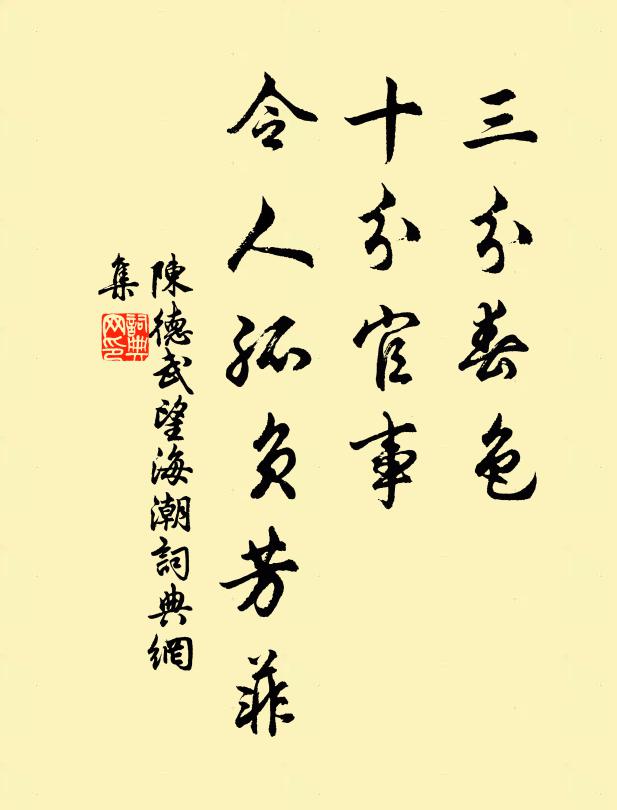 三分春色
十分官事
令人孤负芳菲
陳德武望海潮詞典網
集
詞典
网印